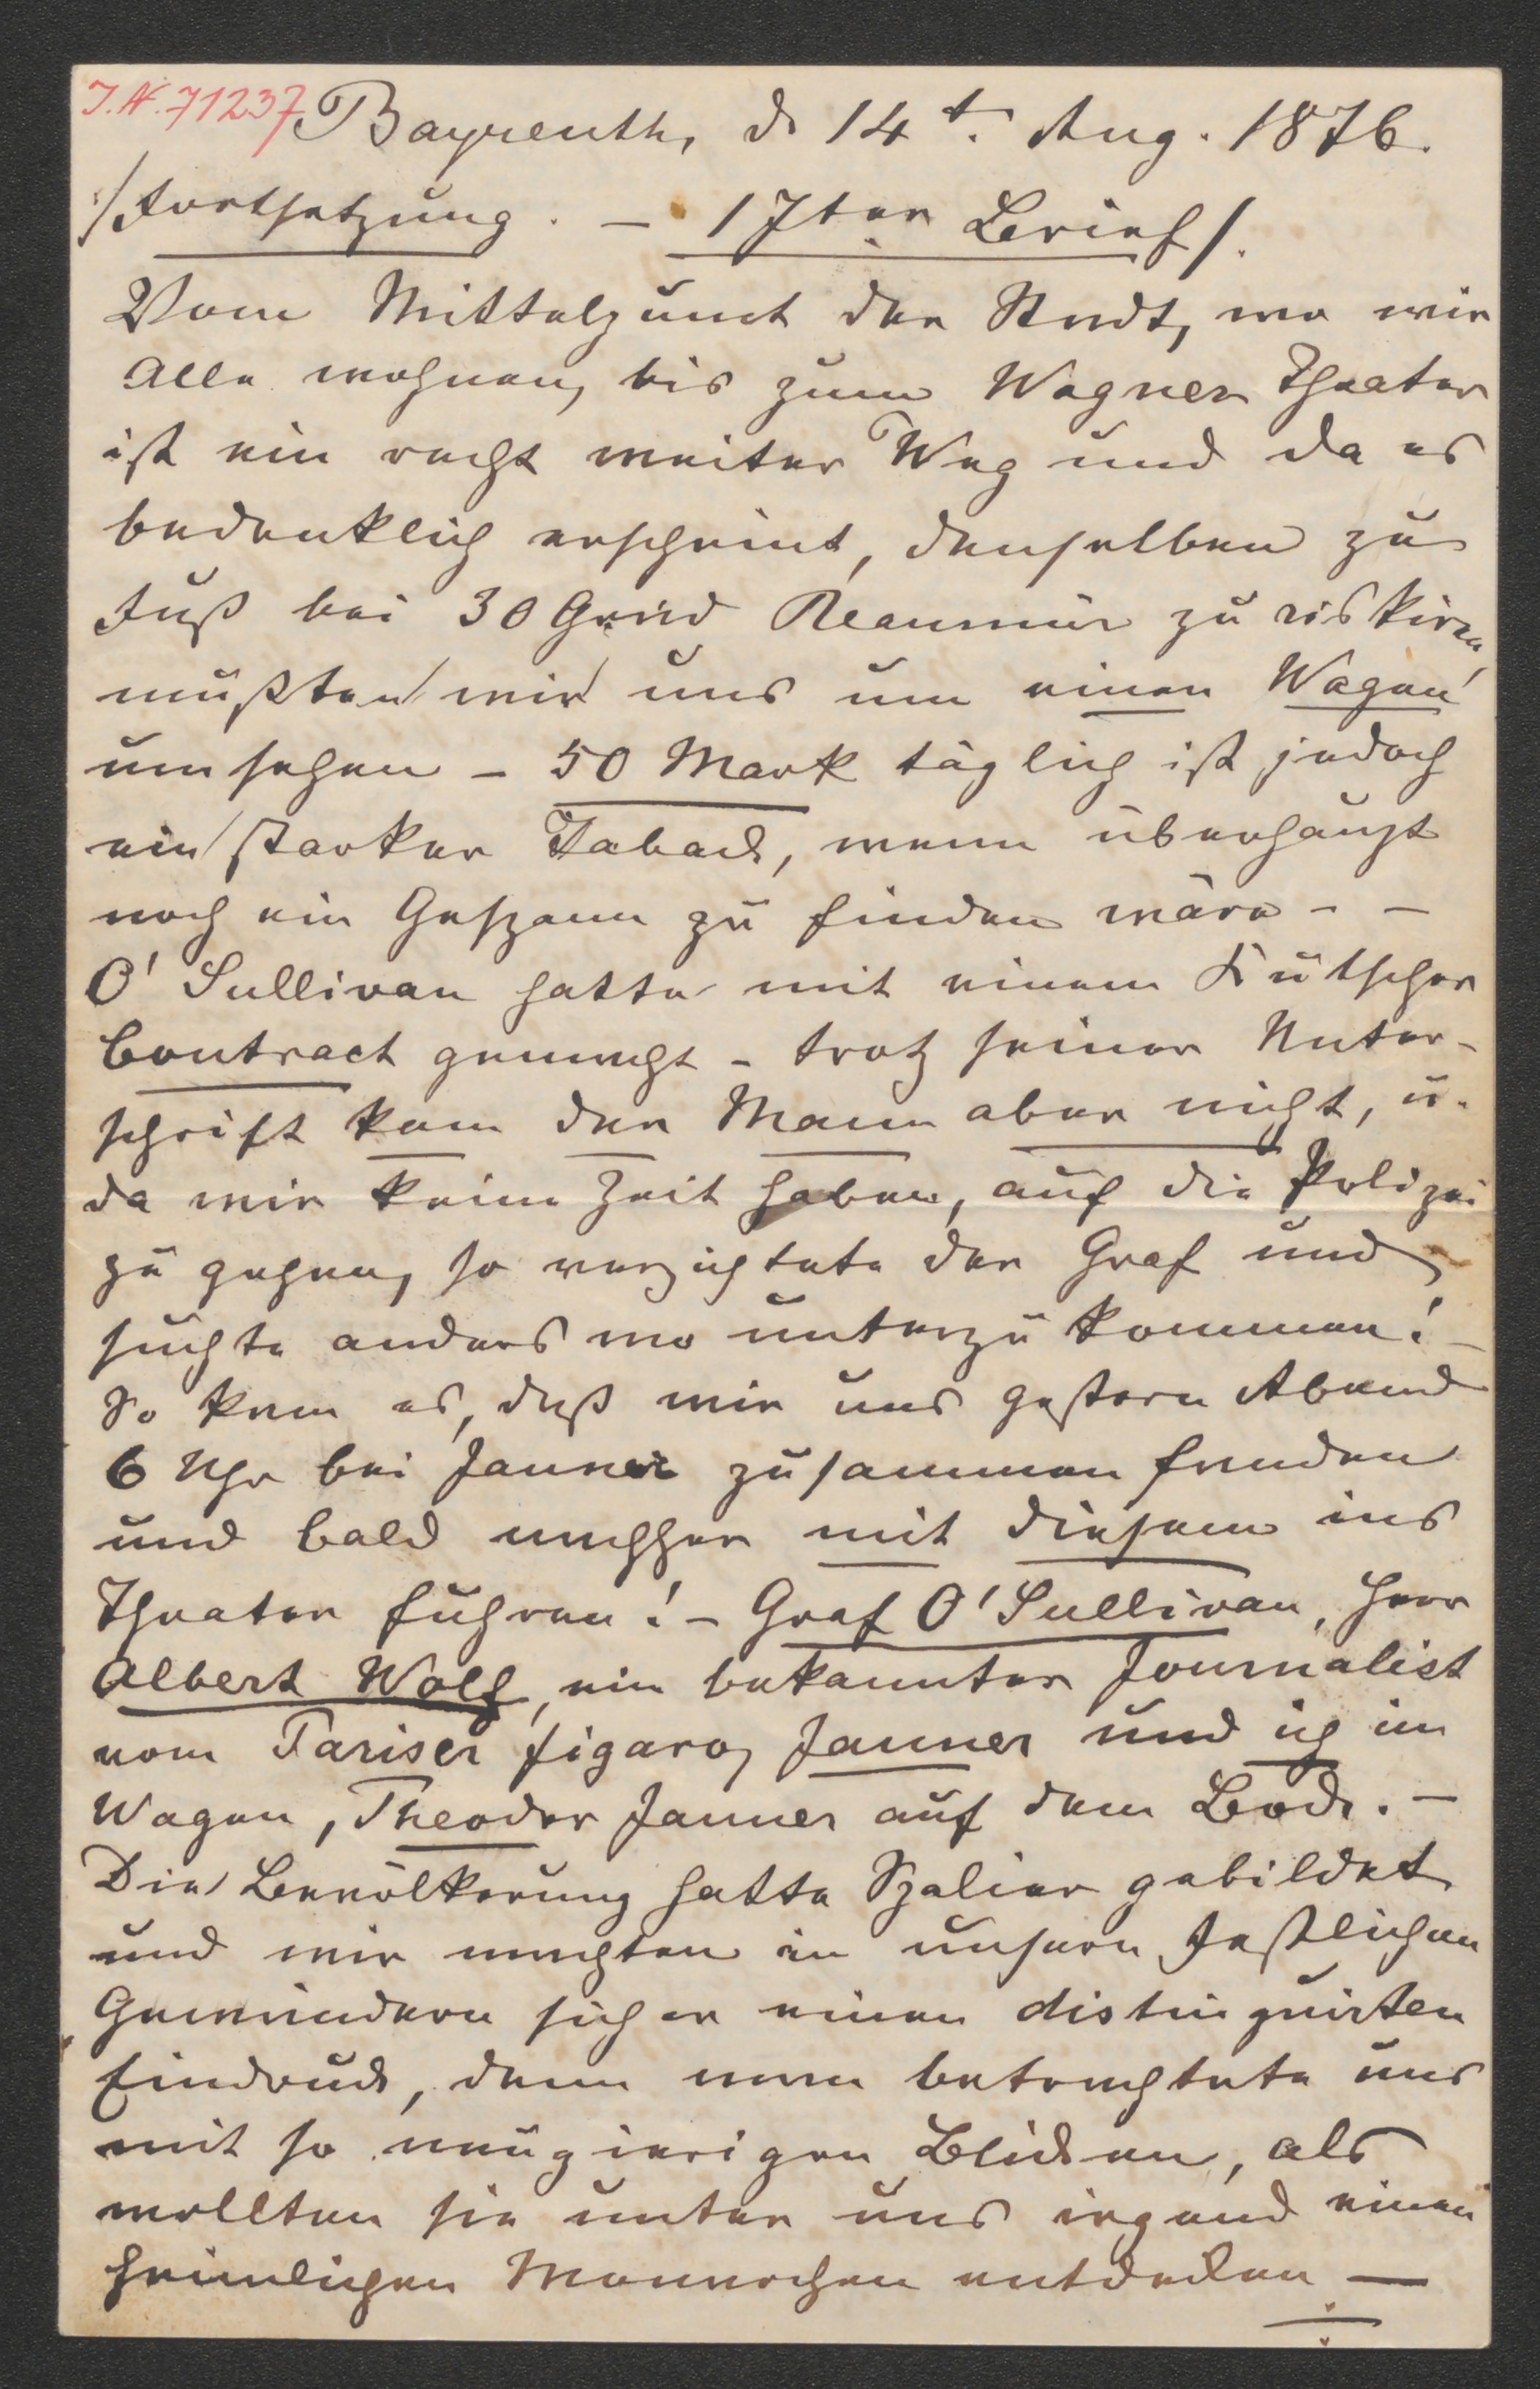 J.N. 71237
Bayreuth, d 14t. Aug. 1876.
/Fortsetzung. – 17ter Brief/.
Vom Mittelpunct der Stadt, wo wir
alle wohnen, bis zum Wagner Theater
ist ein recht weiter Weg und da es
bedenklich erscheint, denselben zu
Fuß bei 30 Grad Reaumür zu riskiren,
mußten wir uns um einen Wagen
umsehen – 50 Mark täglich ist jedoch
ein starker Taback, wenn überhaupt
noch ein Gespann zu finden wäre – –
O'Sullivan hatte mit einem Kutscher
Contract gemacht – trotz seiner Unter-
schrift kam der Mann aber nicht, u.
da wir keine Zeit haben, auf die Polizei
zu gehen, so verzichtete der Graf und
suchte anderswo unterzukommen! –
So kam es, daß wir uns gestern Abend
6 Uhr bei Jauner zusammen fanden
und bald nachher mit diesem ins
Theater fuhren! – Graf O'Sullivan, Herr
Albert Wolf, ein bekannter Journalist
vom Pariser Figaro, Jauner und ich im
Wagen, Theodor Jauner auf dem Bock. –
Die Bevölkerung hatte Spalier gebildet
und wir machten in unsern festlichen
Gewändern sicher einen distinguirten
Eindruck, denn man betrachtete uns
mit so neugierigen Blicken, als
wollten sie unter uns irgend einen
heimlichen Monarchen entdecken —